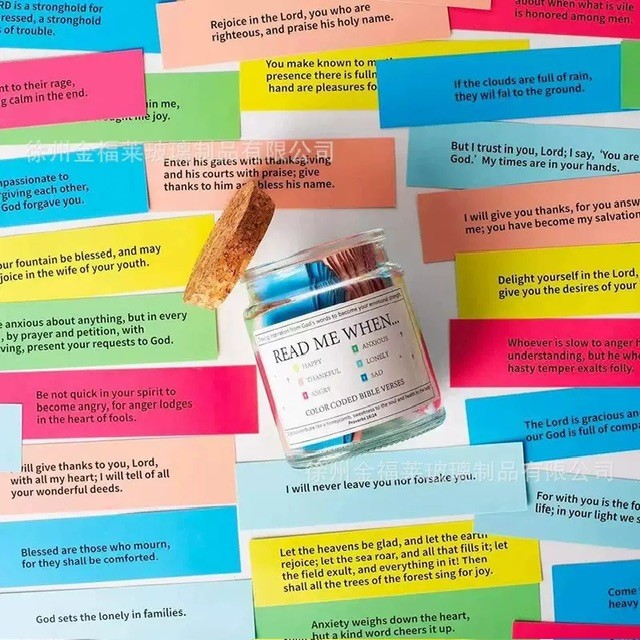 RD is a stronghold for
s a stronghold
s of trouble.
Rejoice in the Lord, you who are
righteous, and praise his holy name.
about when what is vile
is honored among men
nt to their rage,
ng calm in the end.
in me,
ught me joy.
You make known to m
presence there is fulln
hand are pleasures fo
If the clouds are full of rain,
they wil fal to the ground.
徐州金福莱玻璃制品有限公司
mpassionate to
rgiving each other,
God forgave you.
Enter his gates with thanksgiving
and his courts with praise; give
thanks to him and bless his name.
But I trust in you, Lord; I say, 'You are
God.' My times are in your hands.
I will give you thanks, for you answe
me; you have become my salvation
our fountain be blessed, and may
ejoice in the wife of your youth.
Delight yourself in the Lord,
give you the desires of your
e anxious about anything, but in every
, by prayer and petition, with
ving, present your requests to God.
Whoever is slow to anger h
understanding, but he wh
hasty temper exalts folly.
inspiration from God's words to become your emotional compass
READ ME WHEN...
HAPPY
ANXIOUS
THANKFUL
LONELY
ANGRY
SAD
COLOR CODED BIBLE VERSES
Proverbs 16:24
Be not quick in your spirit to
become angry, for anger lodges
in the heart of fools.
The Lord is gracious an
our God is full of compa
徐州金福莱玻璃制品有限公司
will give thanks to you, Lord,
with all my heart; I will tell of all
your wonderful deeds.
I will never leave you nor forsake you.
For with you is the fo
life; in your light we s
Blessed are those who mourn,
for they shall be comforted.
Let the heavens be glad, and let the earth
rejoice; let the sea roar, and all that fills it; let
the field exult, and everything in it! Then
shall all the trees of the forest sing for joy.
Come
heavy
God sets the lonely in families.
Anxiety weighs down the heart,
but a kind word cheers it up.